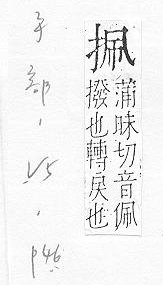 蒲昧切音佩
撥也轉戾也
部
p46